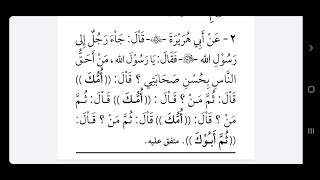 ٢ - عَنْ أَبِي هُرَيْرَةَ -﵁- قَالَ: جَاءَ رَجُلٌ إِلَى
رَسُوْلِ الله -ﷺ- فَقَالَ: يَا رَسُوْلَ الله ، مَنْ أَحَقُّ
النَّاسِ بِحُسْنِ صَحَابَتِي ؟ قَالَ: (( أُمُّكَ ))
قَالَ: ثُمَّ مَنْ ؟ قَالَ : (( أُمُّكَ )) قَالَ: ثُمَّ
مَنْ ؟ قَالَ: (( أُمُّكَ )) قَالَ: ثُمَّ مَنْ ؟ قَالَ:
(( ثُمَّ أَبُوْكَ )). متفق عليه.